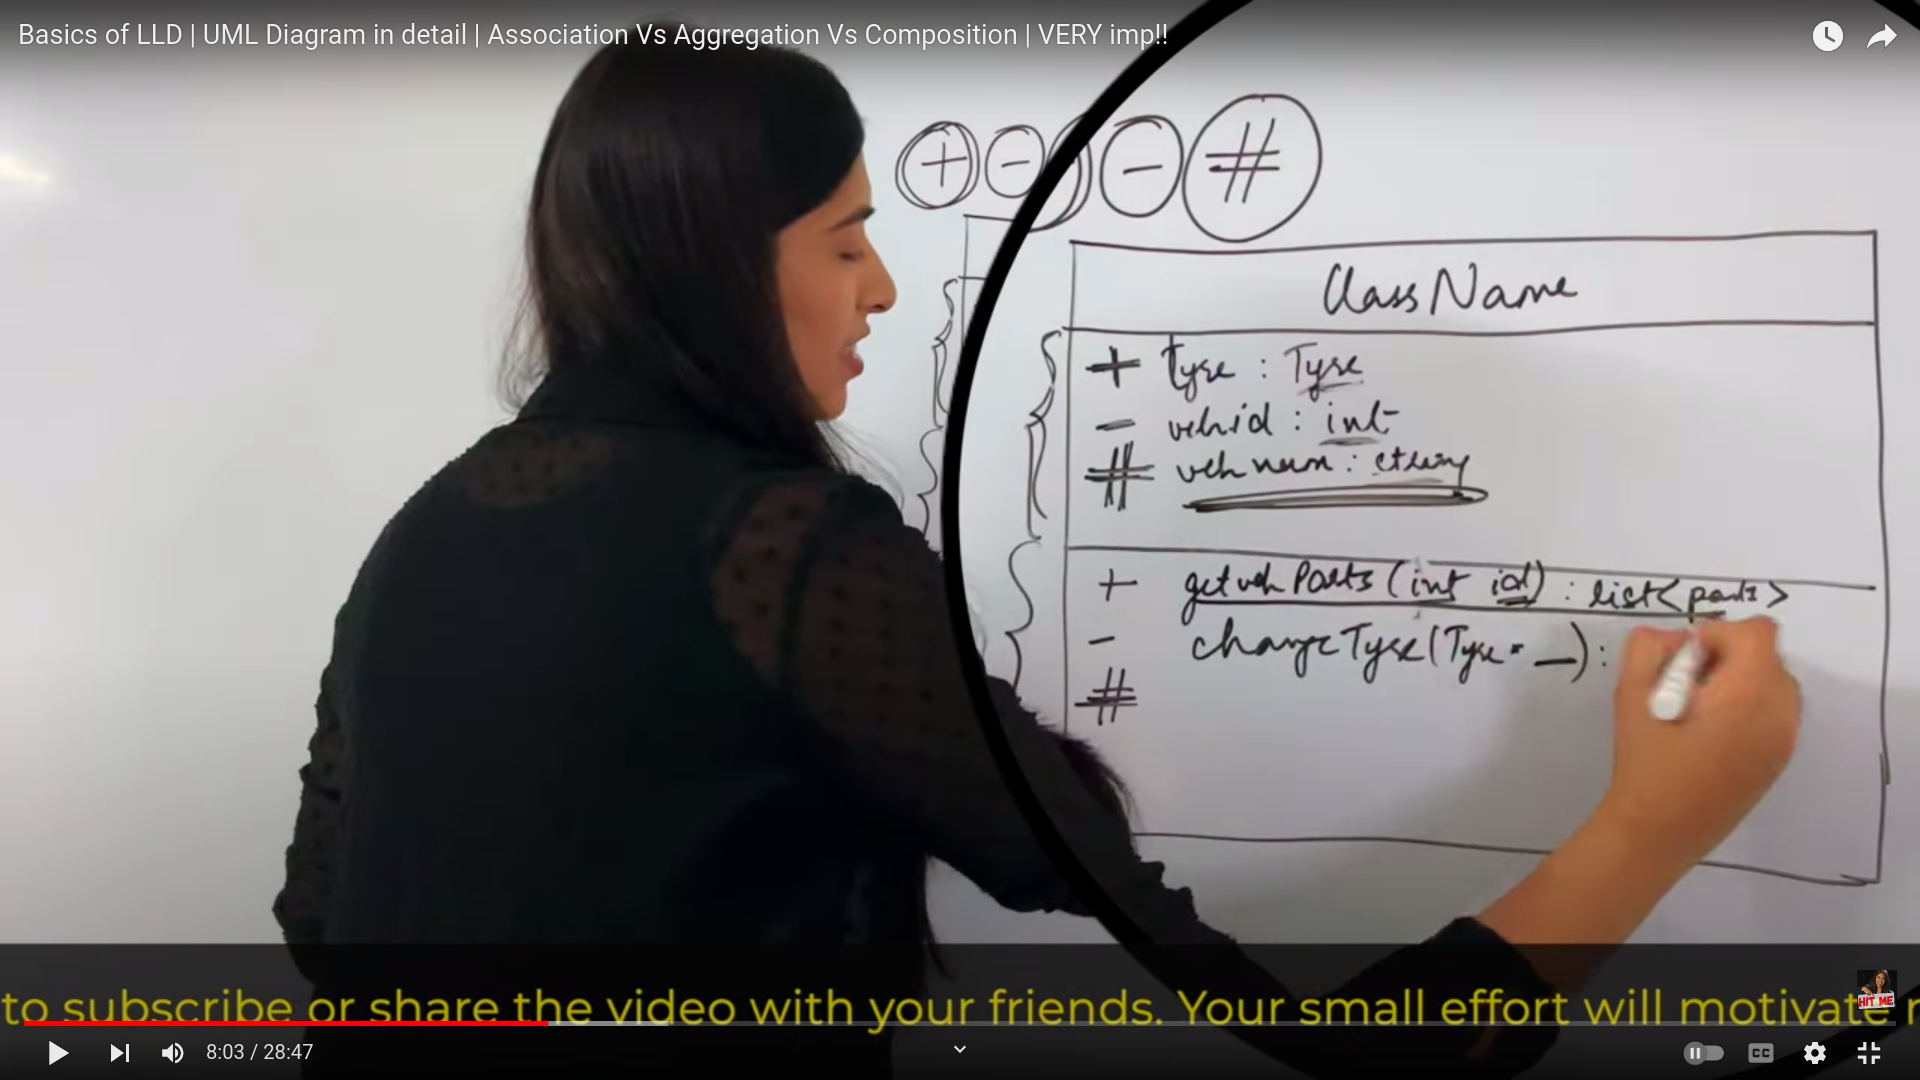 Basics of LLD | UML Diagram in detail | Association Vs Aggregation Vs Composition | VERY imp!!
+ - - #
ClassName
+ type : Type
- vehid : int
# veh num : string
+ getvehParts (int id) : list<parts>
- changeType(Type = _) :
#
to subscribe or share the video with your friends. Your small effort will motivate
HIT ME
8:03 / 28:47
CC